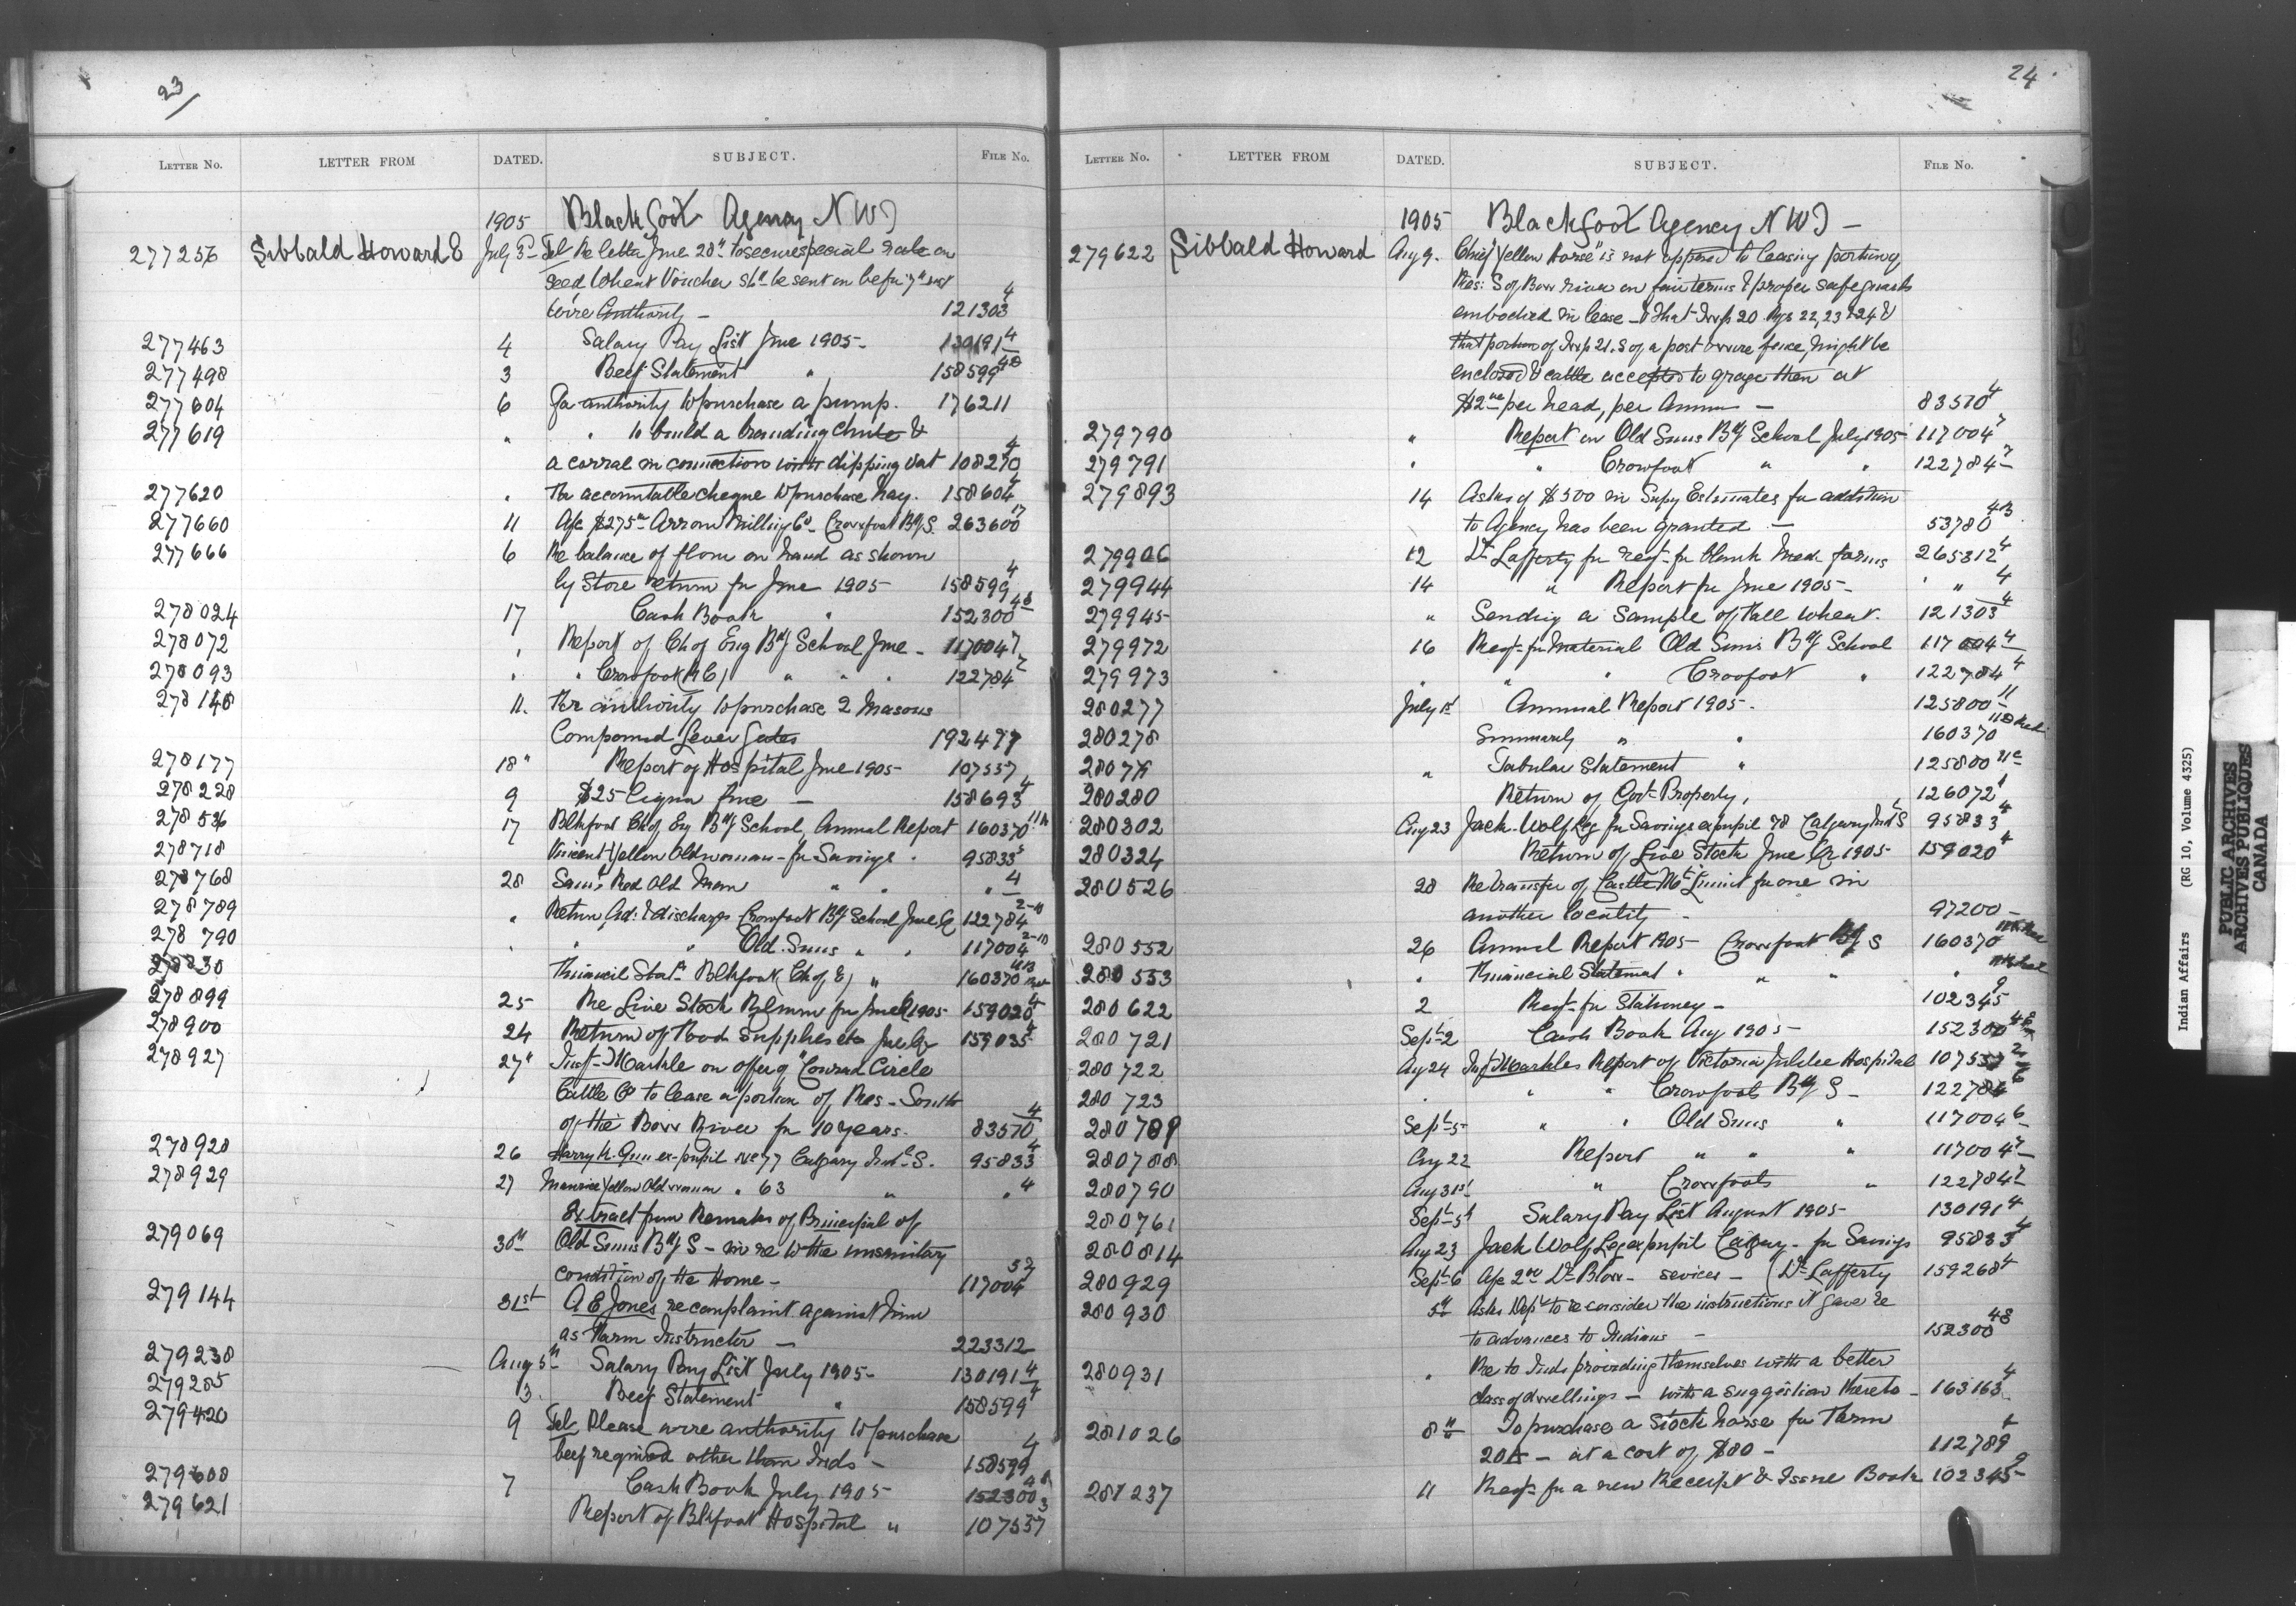 23
LETTER NO. LETTER FROM DATED. SUBJECT. FILE NO.
1905 Blackfoot Agency NWT
277256 Sibbald Howard E July 5th Tel Re letter June 28th to secure special rate on
seed wheat Voucher shd be sent in before 7th inst
wire Authority – 121303 4
277463 4 Salary Pay List June 1905 – 130191 4
277498 3 Beef Statement " 158599 4B
277604 6 For authority to purchase a pump. 176211
277619 " " to build a branding chute &
a corral in connection with dipping vat 108270 4
277620 " For accountable cheque to purchase hay. 158604 4
277660 11 A/c $275 Arrow Milling Co – Crowfoot Bdg S. 263600 17
277666 6 Re balance of flour on hand as shown
by store return for June 1905 158599 4
278024 17 Cash Book " 152300 4B
278072 " Report of Ch of Eng Bdg School June – 117004 7
278093 " " Crowfoot (RC) " " " 122784 7
278148 11. For authority to purchase 2 Masons
Compound Lever Gates 192477
278177 18" Report of Hospital June 1905 107557
278228 9 $25 Cigna fine — 158693 4
278536 17 Blkfoot Ch of Eng Bdg School, Annual Report 160370
278718 Vincent Yellow Oldwoman – for Savings. 95833
278768 28 Saml Red Old Man " " " 4
278789 " Return Ad: & discharges Crowfoot Bdg School June Qr 122784 2-10
278 790 " " " Old Suns " " 117004 2-10
Financial Statt Blkfoot (Ch of E) " 160370
278899 25 Re Live Stock Return for June Qr 1905 159020 4
278900 24 Return of Food Supplies etc June Qr 159035 4
278927 27" Inspr Markle on offer of "Conrad Circle
Cattle Co to lease a portion of Res – South
of the Bow River for 10 years. 83570 4
278928 26 Harry K. Gun ex-pupil No 77 Calgary Indl S. 95833 4
278929 27 Maurice Yellow Oldwoman " 63 " " 4
Extract from Remarks of Principal of
279069 30th Old Suns Bdg S – in re to the unsanitary
condition of the Home – 117004 52
279144 31st A E Jones re complaint against him
as Farm Instructor — 223312
279238 Aug 5th Salary Pay List July 1905 – 130191 4
279285 3. Beef Statement " 158599 4
279420 9 Tel Please wire authority to purchase
beef required other than Inds – 158599 4
279608 7 Cash Book July 1905 152300
279621 Report of Blkfoot Hospital " 107557 3
24
LETTER NO. LETTER FROM DATED. SUBJECT. FILE NO.
1905 Blackfoot Agency NWT –
279622 Sibbald Howard Aug 9. Chief "Yellow Horse" is not opposed to leasing portion of
Res: S of Bow river on fair terms & proper safeguards
embodied in lease – & that Twp 20 Rgs 22, 23 & 24 &
that portion of Twp 21. S of a post & wire fence, might be
enclosed & cattle accepted to graze then at
$2 per head, per Annum — 83570 4
279790 " Report on Old Suns Bdg School July 1905 – 117004 7
279791 " " Crowfoot " " 122784 7
279893 14 Asks if $500 in Supy Estimates for addition
to Agency has been granted — 53780 43
279906 12 Dr Lafferty for reqt for blank Med. forms 265312 4
279944 14 " Report for June 1905 – " " 4
279945 " Sending a sample of Fall Wheat. 121303 4
279972 16 Reqt for Material Old Suns Bdg School 117004 4
279973 " " " Crowfoot " 122784 4
280277 July 1st Annual Report 1905. 125800 11
280278 Summary " " 160370
" Tabular Statement " 125800 11c
280280 Return of Govt Property, 126072 1
280302 Aug 23 Jack Wolf Leg for Savings ex pupil 78 Calgary Ind S 95833 4
280324 Return of Live Stock June Qr 1905 159020 4
280526 28 Re transfer of Castle Mt Limit for one in
another locality – 97200 –
280552 26 Annual Report 1905 – Crowfoot Bdg S 160370
280553 " Financial Statement " " " "
280622 2 Reqt for Stationery – 102345 9
280721 Sept 2 Cash Book Aug 1905 – 152300 4B
280722 Aug 24 Inspr Markles Report of Victoria Jubilee Hospital 107557 2
280723 " " " Crowfoots Bdg S – 122784 6
280789 Sept 5 " " Old Suns " 117004 6
280788 Aug 22 Report " " " 117004 7
280790 Aug 31st " Crowfoots " 122784 7
280761 Sept 5th Salary Pay List August 1905 – 130191 4
280814 Aug 23 Jack Wolf Leg ex pupil Calgary – for Savings 95833 4
280929 Sept 6 A/c 2nd Dr Blow – services – (Dr Lafferty 159268 4
280930 5th Asks Dept to re consider the instructions it gave re
to advances to Indians – 152300 4B
280931 " Re to Inds providing themselves with a better
class of dwellings – with a suggestion thereto – 163163 4
281026 8th To purchase a Stock horse for Farm
20A – at a cost of $80 – 112789
281237 11 Reqt for a new Receipt & Issue Book 102345 9
Indian Affairs (RG 10, Volume 4325)
PUBLIC ARCHIVES
ARCHIVES PUBLIQUES
CANADA